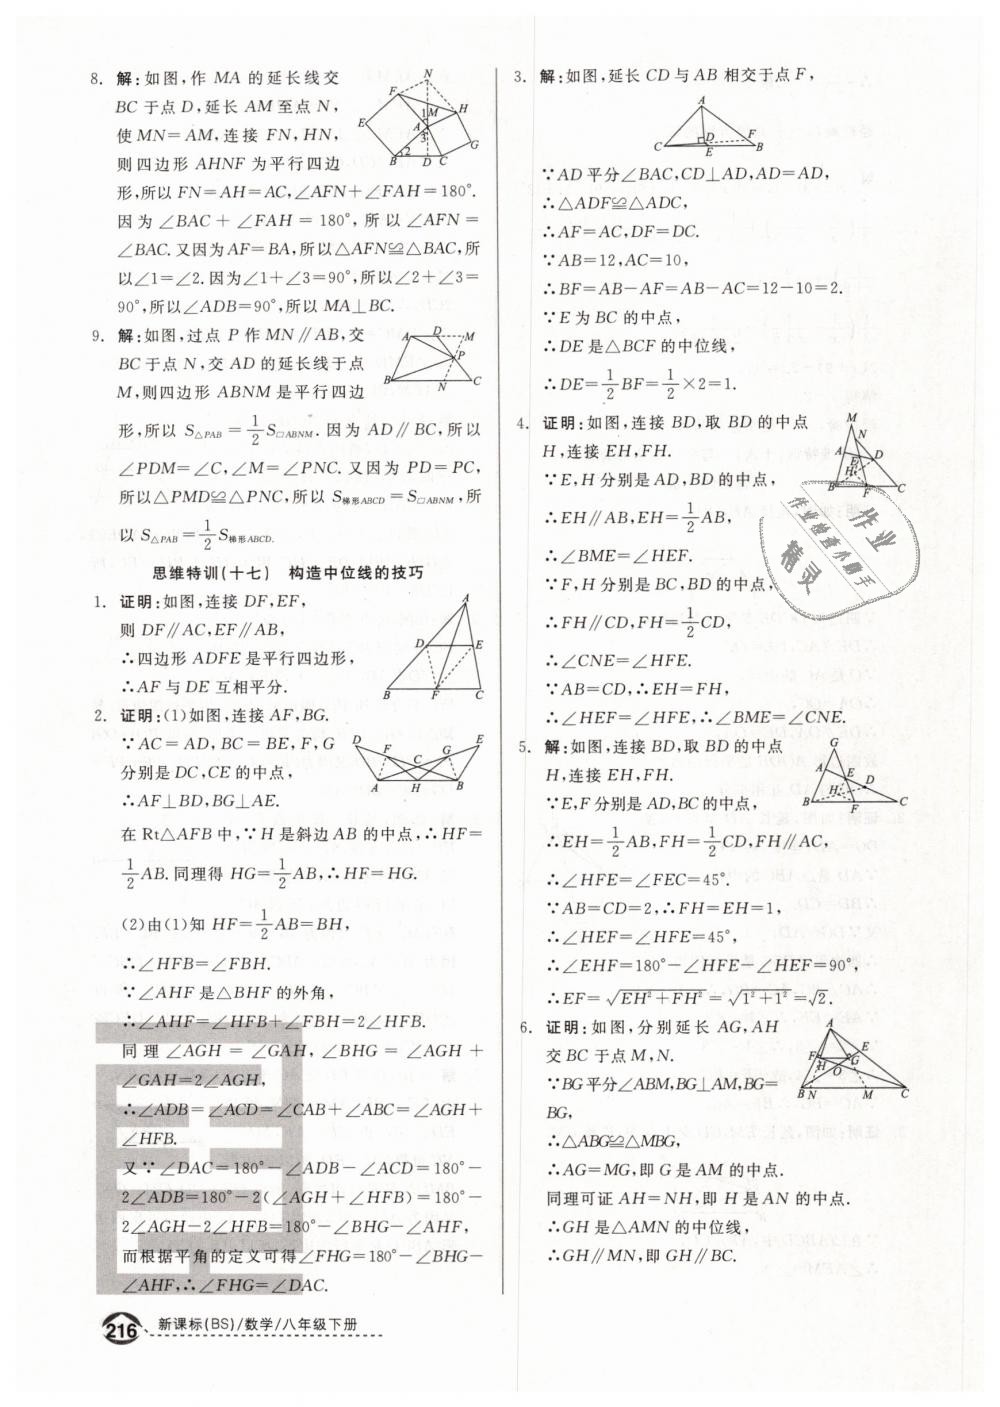 8. 解:如图,作 MA 的延长线交
BC 于点 D,延长 AM 至点 N,
使 MN=AM,连接 FN,HN,
则四边形 AHNF 为平行四边
形,所以 FN=AH=AC,∠AFN+∠FAH=180°.
因为 ∠BAC + ∠FAH = 180°,所以 ∠AFN =
∠BAC.又因为AF=BA,所以△AFN≌△BAC,所
以∠1=∠2.因为∠1+∠3=90°,所以∠2+∠3=
90°,所以∠ADB=90°,所以 MA⊥BC.
9. 解:如图,过点 P 作 MN∥AB,交
BC 于点 N,交 AD 的延长线于点
M,则四边形 ABNM 是平行四边
形,所以 S△PAB = 1/2 S□ABNM.因为 AD∥BC,所以
∠PDM=∠C,∠M=∠PNC.又因为 PD=PC,
所以△PMD≌△PNC,所以 S梯形ABCD = S□ABNM,所
以 S△PAB = 1/2 S梯形ABCD.
思维特训(十七) 构造中位线的技巧
1. 证明:如图,连接 DF,EF,
则 DF∥AC,EF∥AB,
∴四边形 ADFE 是平行四边形,
∴AF 与 DE 互相平分.
2. 证明:(1)如图,连接 AF,BG.
∵AC=AD,BC=BE,F,G
分别是 DC,CE 的中点,
∴AF⊥BD,BG⊥AE.
在 Rt△AFB 中,∵H 是斜边 AB 的中点,∴HF=
1/2 AB.同理得 HG=1/2 AB,∴HF=HG.
(2)由(1)知 HF=1/2 AB=BH,
∴∠HFB=∠FBH.
∵∠AHF 是△BHF 的外角,
∴∠AHF=∠HFB+∠FBH=2∠HFB.
同理 ∠AGH = ∠GAH,∠BHG = ∠AGH +
∠GAH=2∠AGH,
∴∠ADB=∠ACD=∠CAB+∠ABC=∠AGH+
∠HFB.
又∵∠DAC=180°-∠ADB-∠ACD=180°-
2∠ADB=180°-2(∠AGH+∠HFB)=180°-
2∠AGH-2∠HFB=180°-∠BHG-∠AHF,
而根据平角的定义可得∠FHG=180°-∠BHG-
∠AHF,∴∠FHG=∠DAC.
3. 解:如图,延长 CD 与 AB 相交于点 F,
∵AD 平分∠BAC,CD⊥AD,AD=AD,
∴△ADF≌△ADC,
∴AF=AC,DF=DC.
∵AB=12,AC=10,
∴BF=AB-AF=AB-AC=12-10=2.
∵E 为 BC 的中点,
∴DE 是△BCF 的中位线,
∴DE=1/2 BF=1/2×2=1.
4. 证明:如图,连接 BD,取 BD 的中点
H,连接 EH,FH.
∵E,H 分别是 AD,BD 的中点,
∴EH∥AB,EH=1/2 AB,
∴∠BME=∠HEF.
∵F,H 分别是 BC,BD 的中点,
∴FH∥CD,FH=1/2 CD,
∴∠CNE=∠HFE.
∵AB=CD,∴EH=FH,
∴∠HEF=∠HFE,∴∠BME=∠CNE.
5. 解:如图,连接 BD,取 BD 的中点
H,连接 EH,FH.
∵E,F 分别是 AD,BC 的中点,
∴EH=1/2 AB,FH=1/2 CD,FH∥AC,
∴∠HFE=∠FEC=45°.
∵AB=CD=2,∴FH=EH=1,
∴∠HEF=∠HFE=45°,
∴∠EHF=180°-∠HFE-∠HEF=90°,
∴EF=√(EH²+FH²)=√(1²+1²)=√2.
6. 证明:如图,分别延长 AG,AH
交 BC 于点 M,N.
∵BG 平分∠ABM,BG⊥AM,BG=
BG,
∴△ABG≌△MBG,
∴AG=MG,即 G 是 AM 的中点.
同理可证 AH=NH,即 H 是 AN 的中点.
∴GH 是△AMN 的中位线,
∴GH∥MN,即 GH∥BC.
作业
作业检查小助手
精灵
216 新课标(BS)/数学/八年级下册